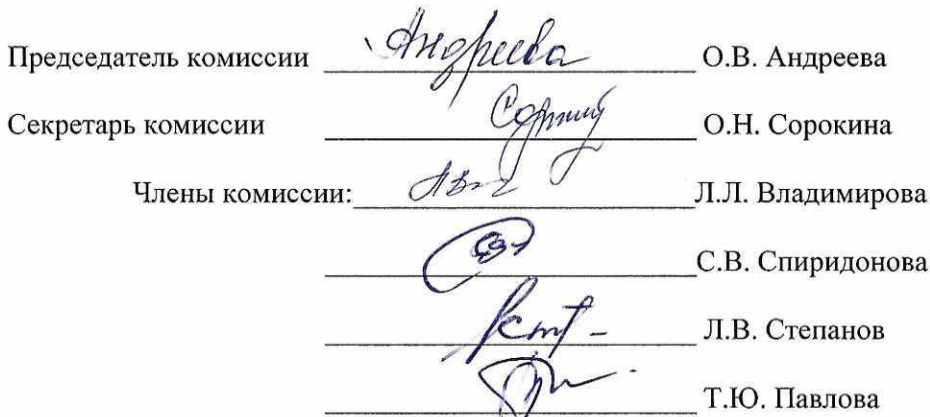 Председатель комиссии Андреева О.В. Андреева
Секретарь комиссии О.Н. Сорокина
Члены комиссии: Л.Л. Владимирова
С.В. Спиридонова
Л.В. Степанов
Т.Ю. Павлова